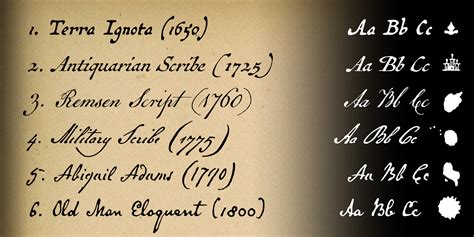 1. Terra Ignota (1650) Aa Bb Cc
2. Antiquarian Scribe (1725) Aa Bb Cc
3. Remsen Script (1760) Aa Bb Cc
4. Military Scribe (1775) Aa Bb Cc
5. Abigail Adams (1790) Aa Bb Cc
6. Old Man Eloquent (1800) Aa Bb Cc